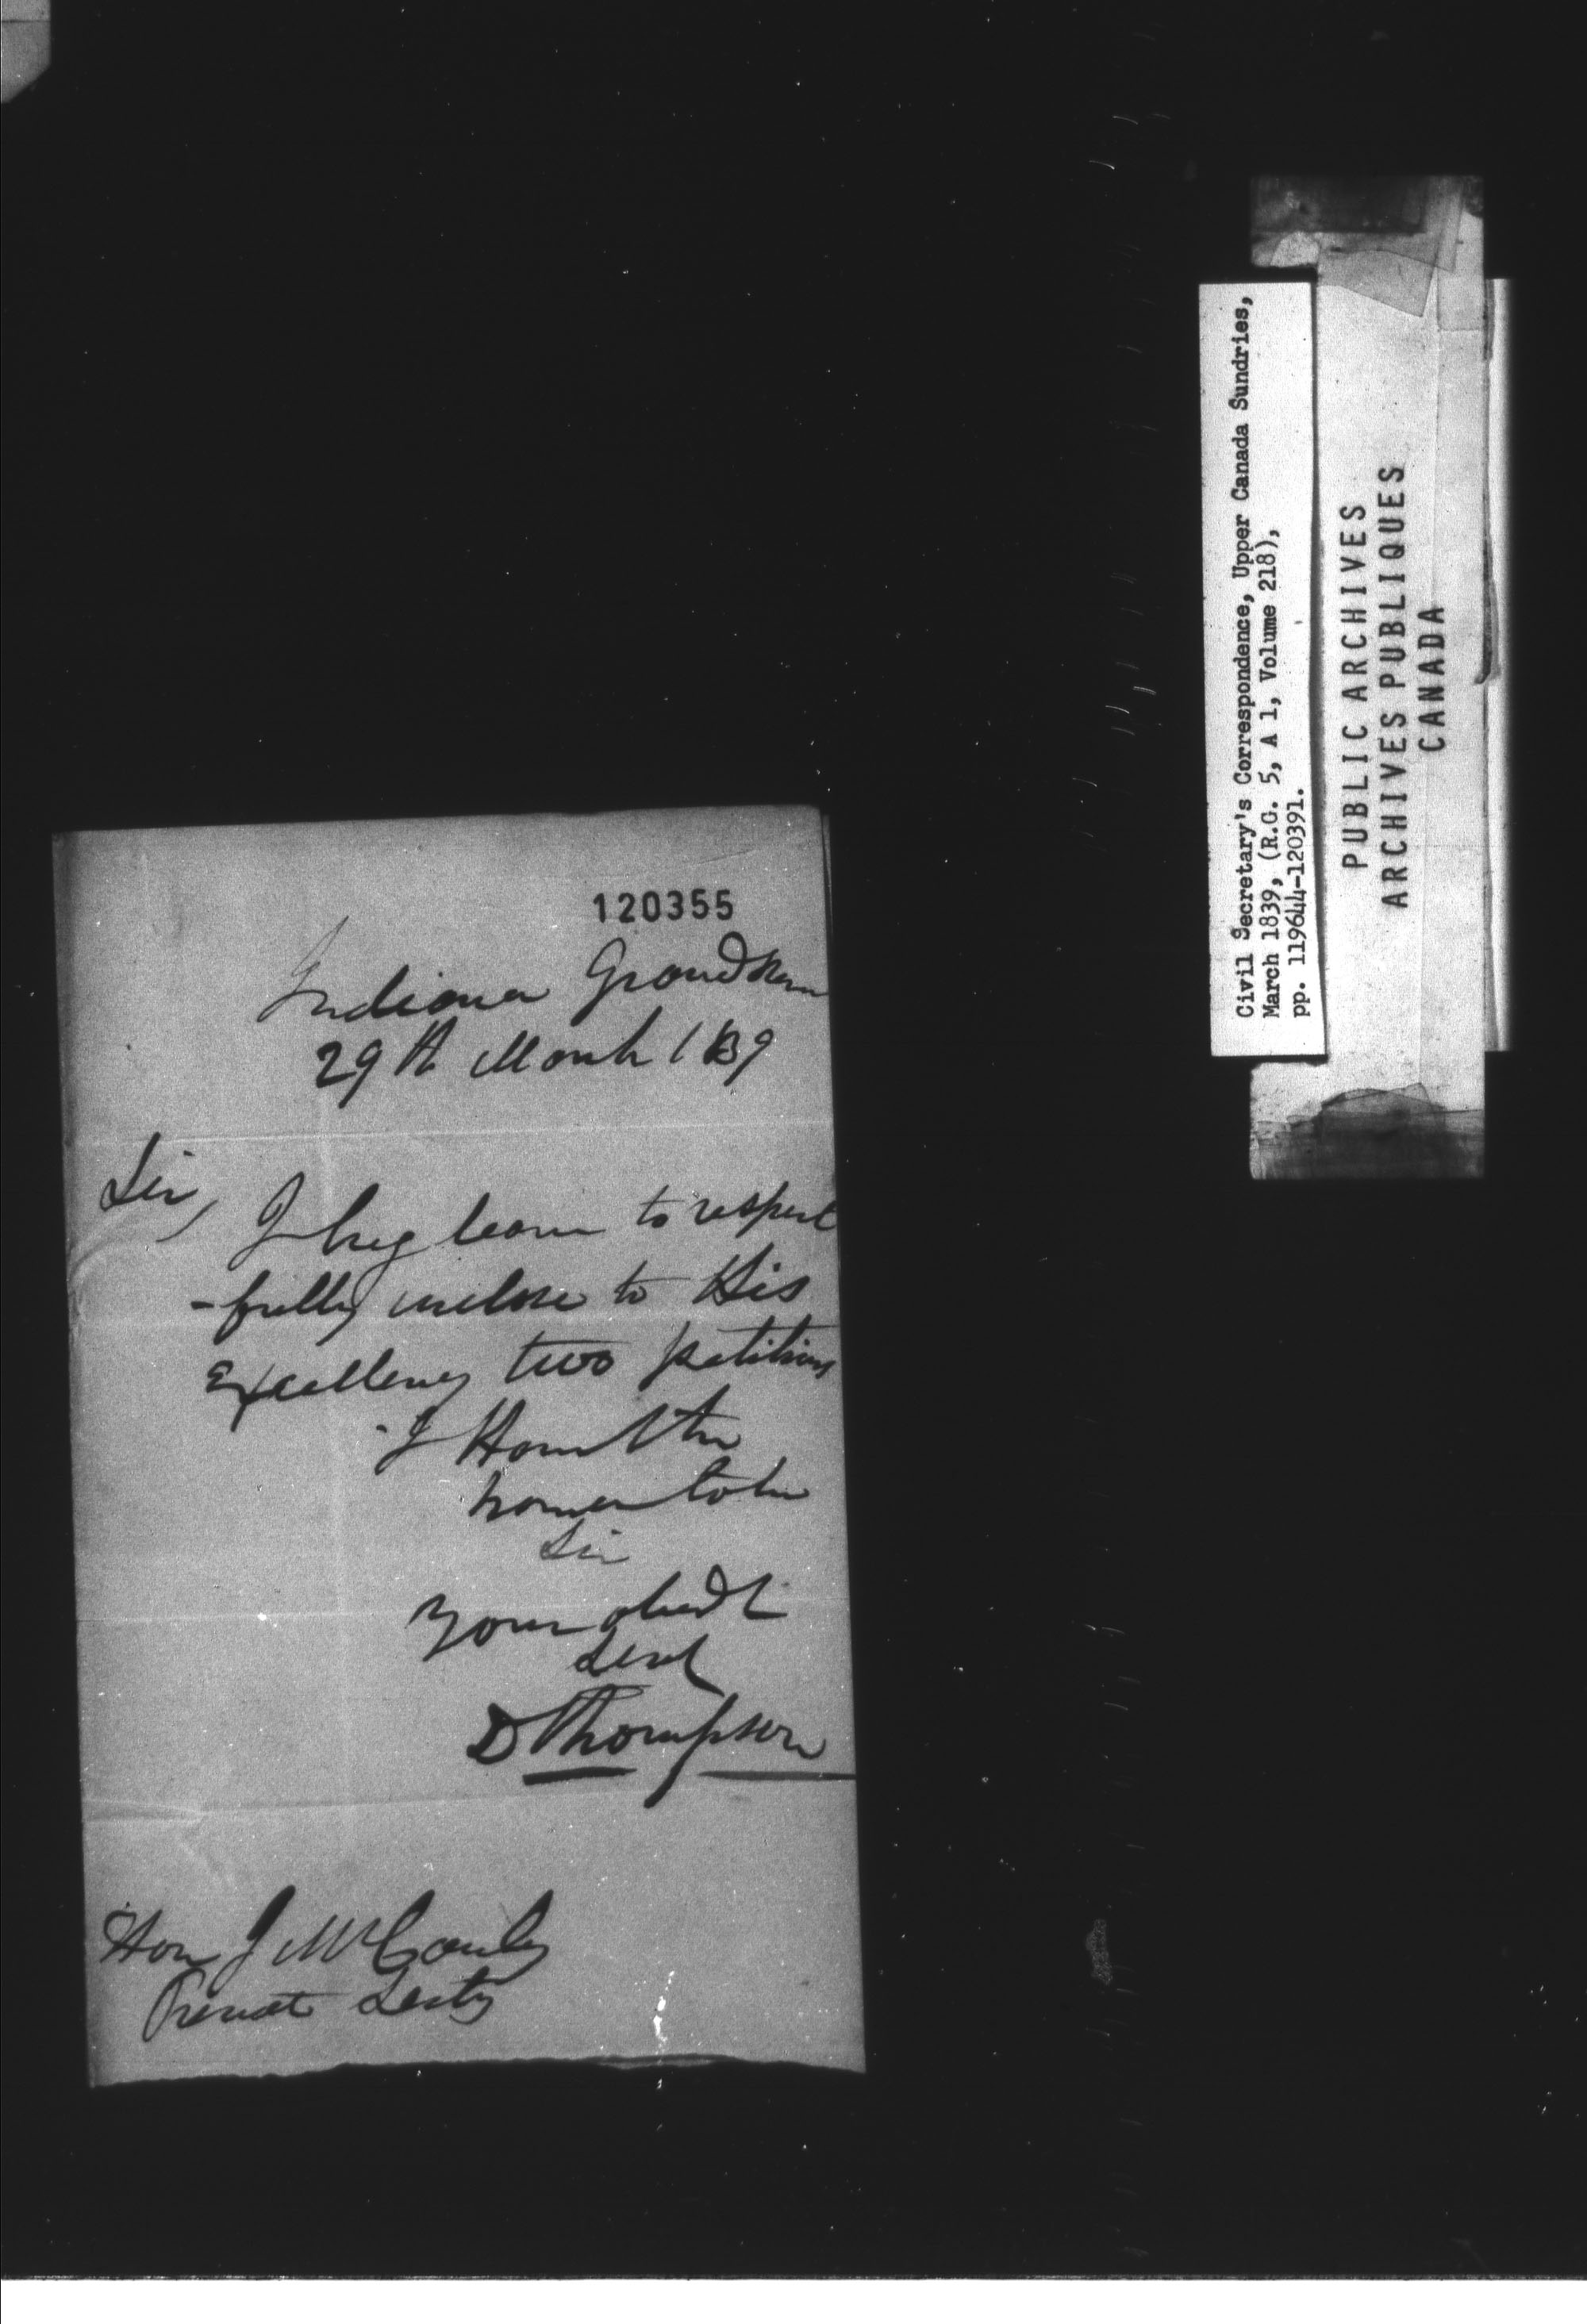 120355
Indiana Grand River
29th March 1839
Sir,
I beg leave to respect
-fully inclose to His
Excellency two petitions
I Have the
honor to be
Sir
your obedt
Servt
D Thompson
Hon J McCauley
Privat Secty
Civil Secretary's Correspondence, Upper Canada Sundries,
March 1839, (R.G. 5, A 1, Volume 218),
pp. 119644-120391.
PUBLIC ARCHIVES
ARCHIVES PUBLIQUES
CANADA